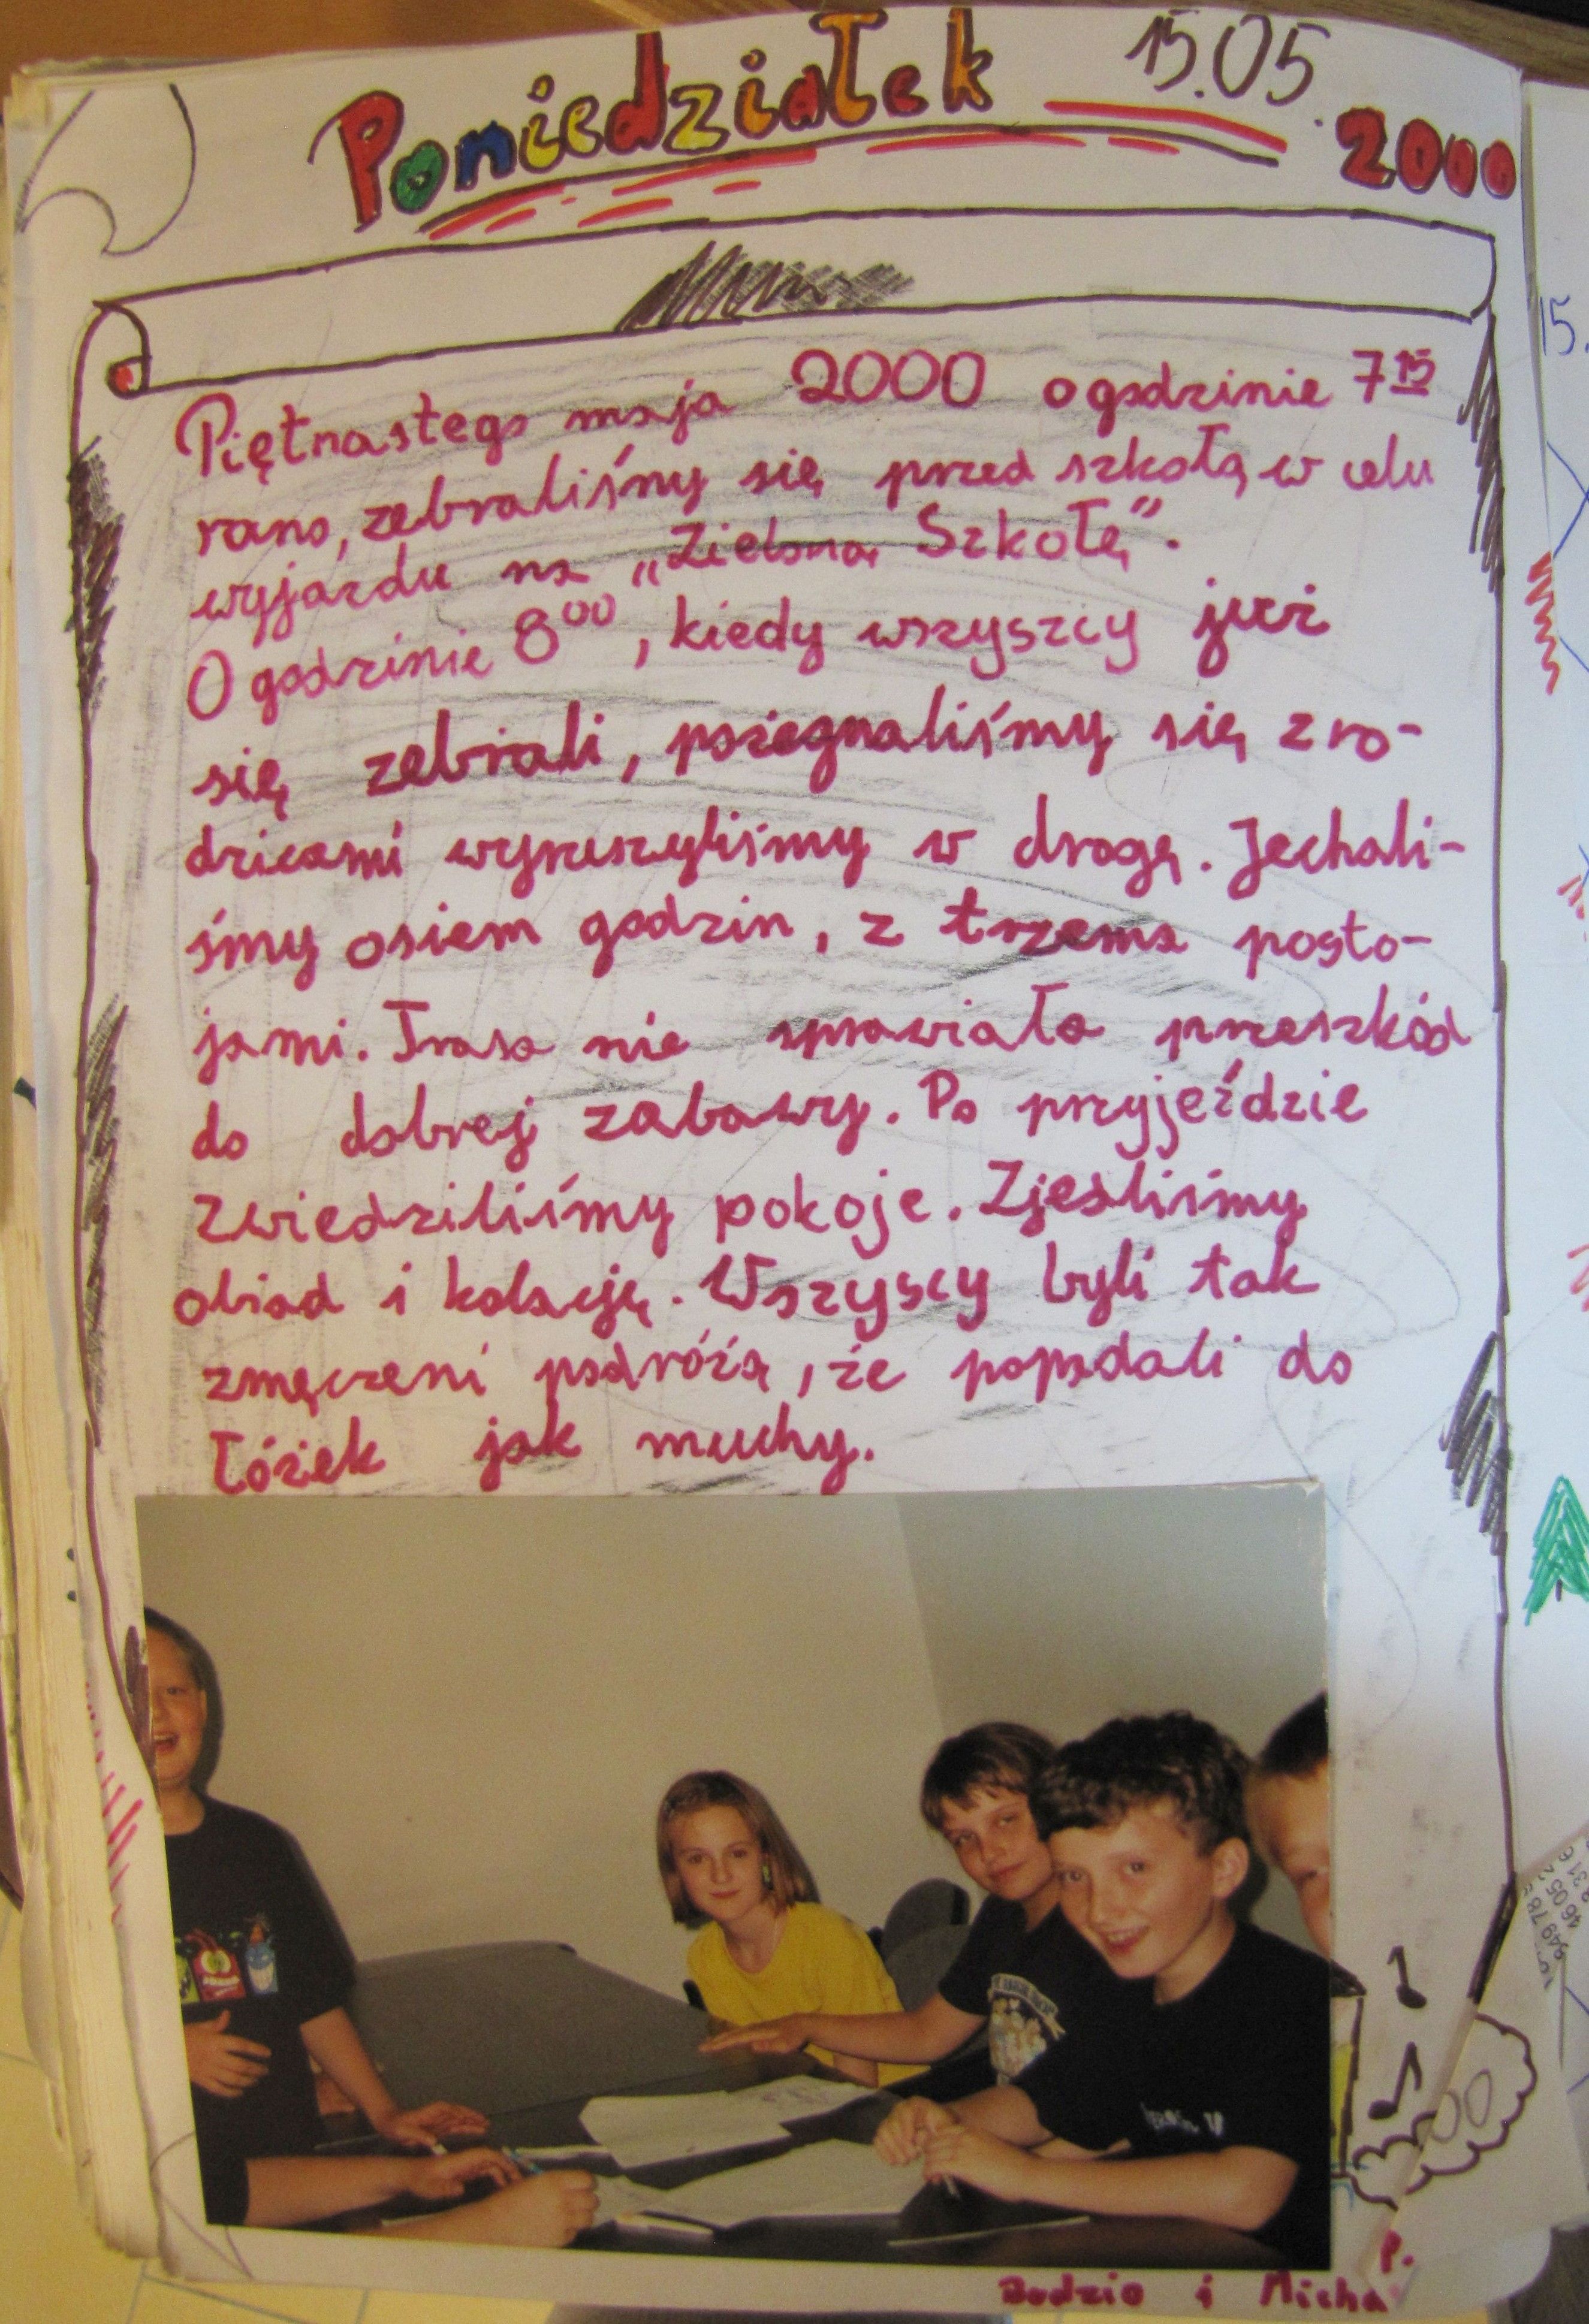 Poniedziałek 15.05.2000
Piętnastego maja 2000 o godzinie 7 15
rano, zebraliśmy się przed szkołą w celu
wyjazdu na „Zieloną Szkołę”.
O godzinie 8 00, kiedy wszyszcy już
się zebrali, pożegnaliśmy się z ro-
dzicami wyruszyliśmy w drogę. Jechali-
śmy osiem godzin, z trzema posto-
jami. Trasa nie sprawiała przeszkód
do dobrej zabawy. Po przyjeździe
zwiedziliśmy pokoje. Zjedliśmy
obiad i kolację. Wszyscy byli tak
zmęczeni podróżą, że popadali do
łóżek jak muchy.
P.
Budzio i Micha
15.